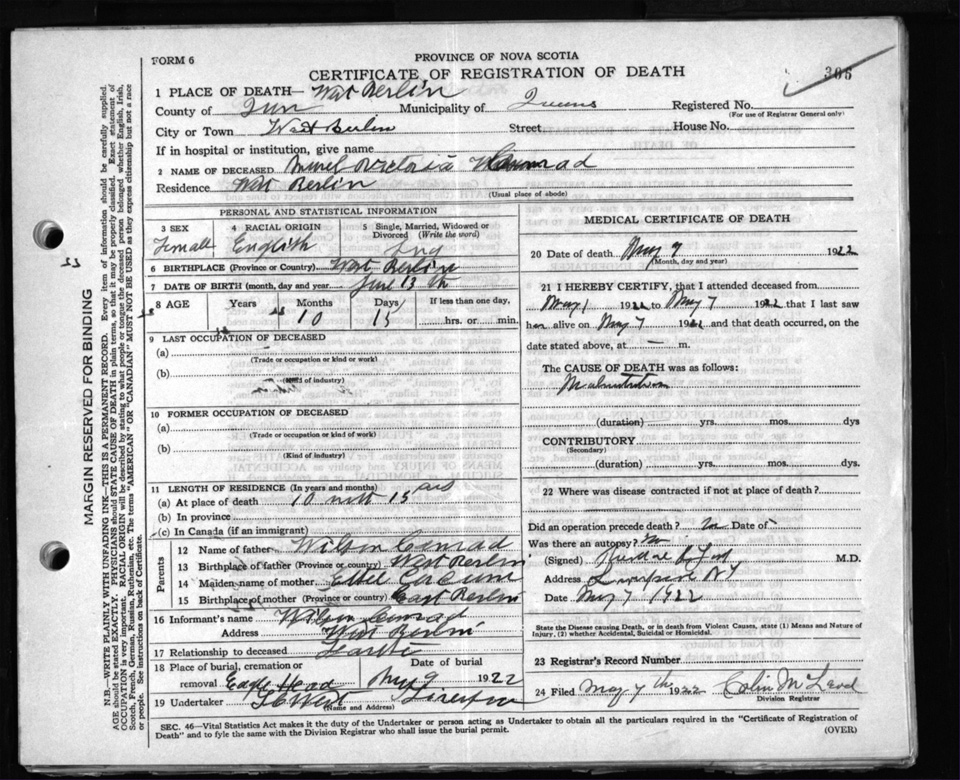 FORM 6
PROVINCE OF NOVA SCOTIA
CERTIFICATE OF REGISTRATION OF DEATH
306
1 PLACE OF DEATH— West Berlin
County of Qun Municipality of Queens Registered No.
(For use of Registrar General only)
City or Town West Berlin Street House No.
If in hospital or institution, give name
2 NAME OF DECEASED Conrad
Residence West Berlin
(Usual place of abode)
PERSONAL AND STATISTICAL INFORMATION
3 SEX 4 RACIAL ORIGIN 5 Single, Married, Widowed or Divorced (Write the word)
Female English Sng
6 BIRTHPLACE (Province or Country) West Berlin
7 DATE OF BIRTH (month, day and year June 13 th
8 AGE Years Months Days If less than one day,
10 15 hrs. or min.
9 LAST OCCUPATION OF DECEASED
(a)
(Trade or occupation or kind of work)
(b)
(Kind of industry)
10 FORMER OCCUPATION OF DECEASED
(a)
(Trade or occupation or kind of work)
(b)
(Kind of industry)
11 LENGTH OF RESIDENCE (In years and months)
(a) At place of death 10 mth 15
(b) In province
(c) In Canada (if an immigrant)
Parents
12 Name of father Wilson Conrad
13 Birthplace of father (Province or country) West Berlin
14 Maiden name of mother Ethel
15 Birthplace of mother (Province or country) East Berlin
16 Informant's name Wilson Conrad
Address West Berlin
17 Relationship to deceased Father
18 Place of burial, cremation or removal Eagle Head
Date of burial May 9 1922
19 Undertaker West Liverpool
(Name and Address)
MEDICAL CERTIFICATE OF DEATH
20 Date of death May 7 1922
(Month, day and year)
21 I HEREBY CERTIFY, that I attended deceased from
May 1 1922 to May 7 1922 that I last saw
her alive on May 7 1922 and that death occurred, on the
date stated above, at — m.
The CAUSE OF DEATH was as follows:
Malnutrition
(duration) yrs. mos. dys
CONTRIBUTORY
(Secondary)
(duration) yrs. mos. dys.
22 Where was disease contracted if not at place of death?
Did an operation precede death? no Date of
Was there an autopsy? no
(Signed) M.D.
Address Liverpool NS
Date May 7 1922
State the Disease causing Death, or in death from Violent Causes, state (1) Means and Nature of Injury, (2) whether Accidental, Suicidal or Homicidal.
23 Registrar's Record Number
24 Filed May 7th 1922 Colin McLeod
Division Registrar
SEC. 46—Vital Statistics Act makes it the duty of the Undertaker or person acting as Undertaker to obtain all the particulars required in the "Certificate of Registration of
Death" and to fyle the same with the Division Registrar who shall issue the burial permit. (OVER)
MARGIN RESERVED FOR BINDING
N.B.—WRITE PLAINLY WITH UNFADING INK—THIS IS A PERMANENT RECORD. Every item of information should be carefully supplied.
AGE should be stated EXACTLY. PHYSICIANS should STATE CAUSE OF DEATH in plain terms, so that it may be properly classified. Exact statement of
OCCUPATION is very important. RACIAL ORIGIN will be described by stating to what people or tongue the deceased person belonged whether English, Irish,
Scotch, French, German, Russian, Ruthenian, etc. The terms "AMERICAN" OR "CANADIAN" MUST NOT BE USED as they express citizenship but not a race
or people. See instructions on back of Certificate.